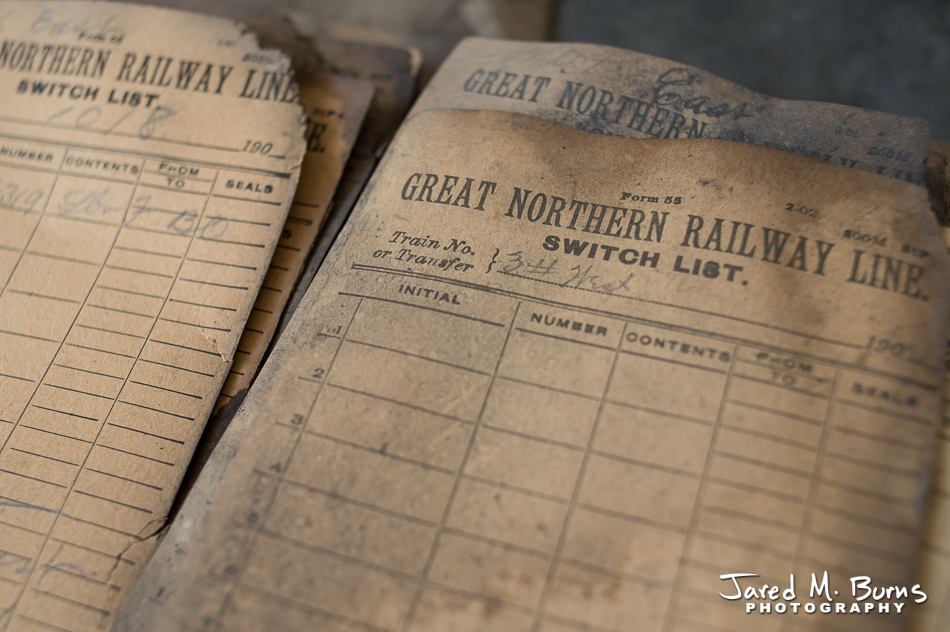 Form 55
NORTHERN RAILWAY LINE.
SWITCH LIST.
10/8
190
NUMBER CONTENTS FROM TO SEALS
319
BO
E.
East
GREAT NORTHERN
2-02
Form 55 2-02 500M
GREAT NORTHERN RAILWAY LINE.
SWITCH LIST.
Train No. or Transfer } 3# West
190
INITIAL NUMBER CONTENTS FROM TO SEALS
1
2
3
4
Jared M. Burns
PHOTOGRAPHY